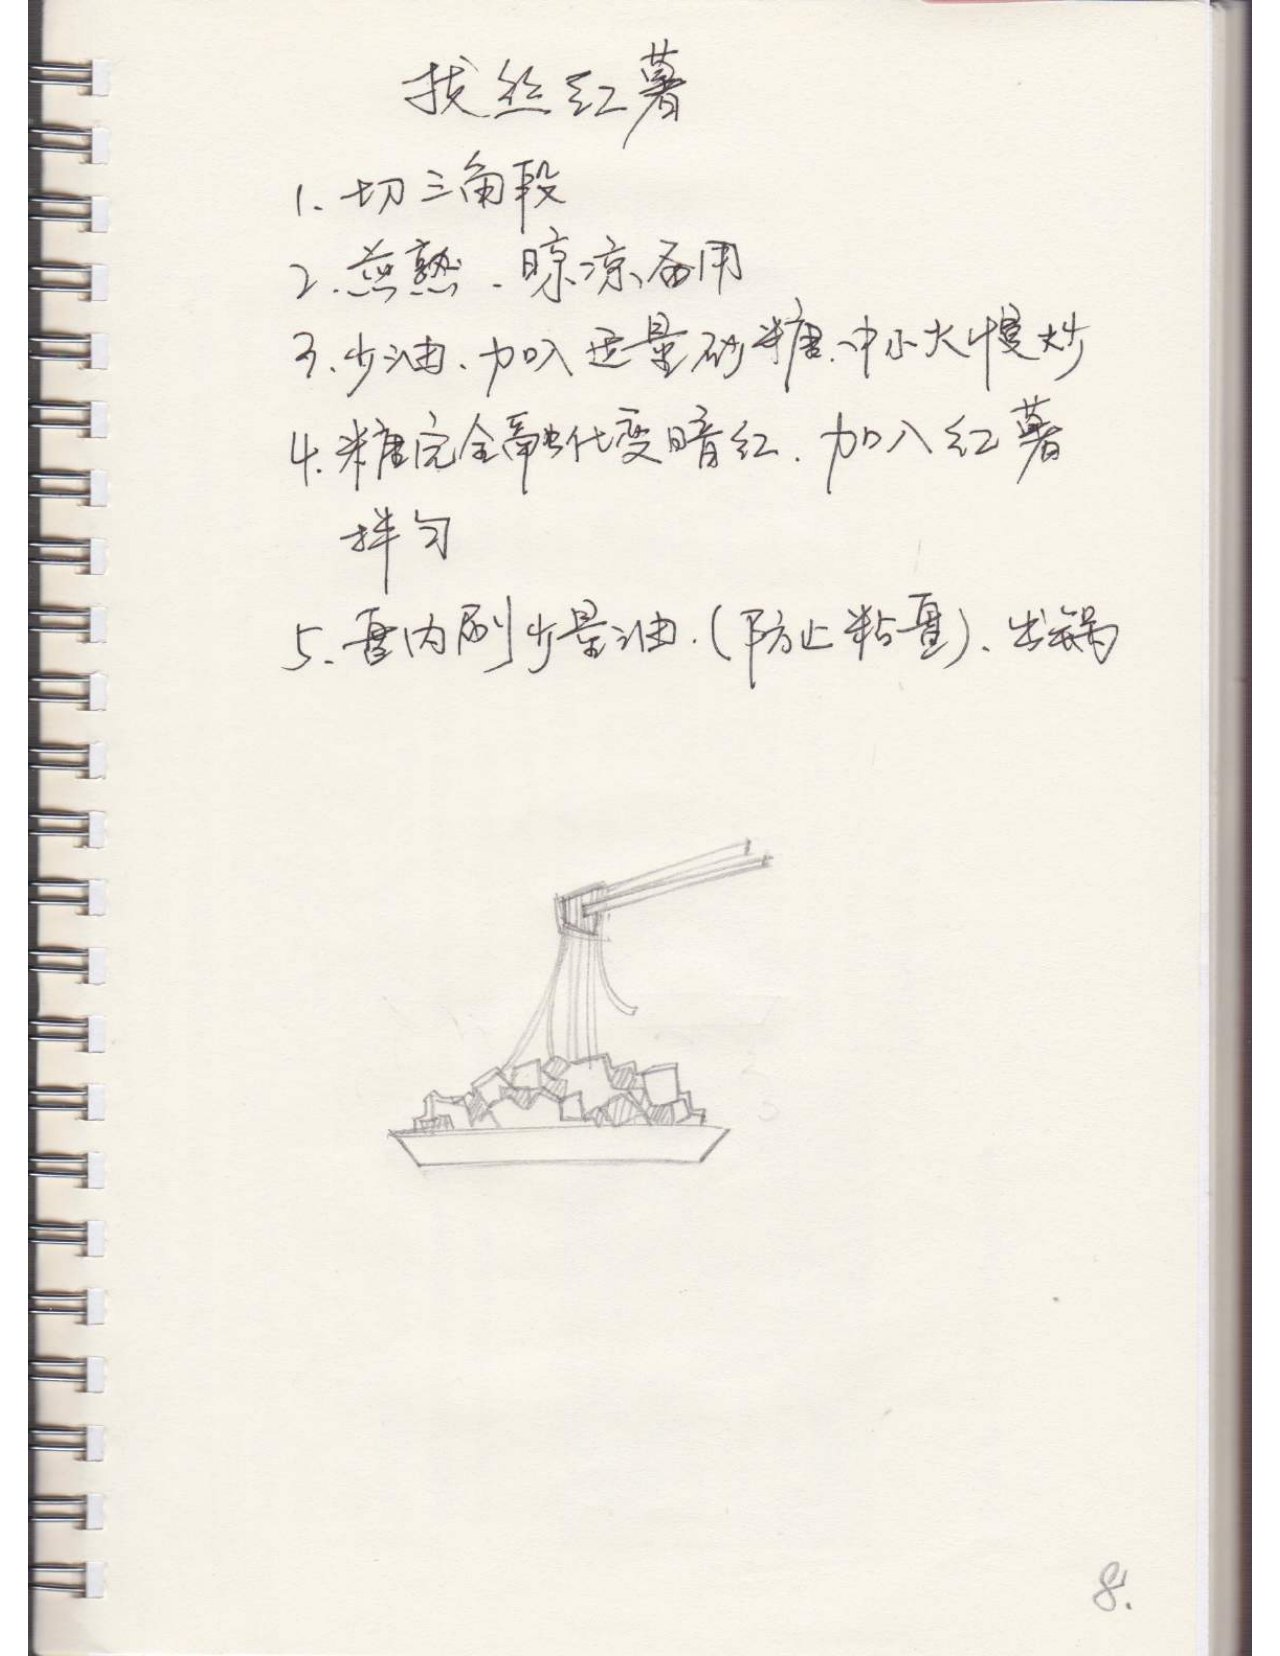 拔丝红薯
1.切三角段
2.蒸熟、晾凉备用
3.少油、加入适量砂糖、中小火慢炒
4.糖完全融化变暗红、加入红薯
拌匀
5.盘内刷少量油.(防止粘盘)、出锅
8.